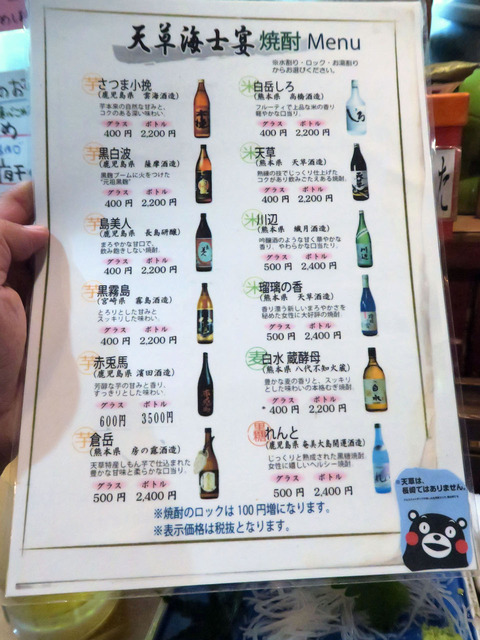 天草海士宴 焼酎 Menu
※水割り・ロック・お湯割り
からお選びください。
芋 さつま小挽
(鹿児島県 雲海酒造)
芋本来の自然な甘みと、
コクのある深い味わい。
グラス ボトル
400 円 2,200 円
芋 黒白波
(鹿児島県 薩摩酒造)
黒麹ブームに火をつけた
"元祖黒麹"
グラス ボトル
400 円 2,200 円
芋 島美人
(鹿児島県 長島研醸)
まろやかな甘口で、
飲み飽きしない焼酎.
グラス ボトル
400 円 2,200 円
芋 黒霧島
(宮崎県 霧島酒造)
とろりとした甘みと
スッキリした味わい.
グラス ボトル
400 円 2,200 円
芋 赤兎馬
(鹿児島県 濱田酒造)
芳醇な芋の甘みと香り、
すっきりとした味わい
グラス ボトル
600円 3500円
芋 倉岳
(熊本県 房の露酒造)
天草特産しもん芋で仕込まれた
豊かな甘味と柔らかな口当り.
グラス ボトル
500 円 2,400 円
米 白岳しろ
(熊本県 高橋酒造)
フルーティで上品な米の香り
軽やかな口当り.
グラス ボトル
400 円 2,200 円
米 天草
(熊本県 天草酒造)
熟練の技でじっくり仕上げた
コクがあり飲みごたえある焼酎.
グラス ボトル
400 円 2,200 円
米 川辺
(熊本県 繊月酒造)
吟醸酒のような甘く華やかな
香り、やわらかな口当たり.
グラス ボトル
500 円 2,400 円
米 瑠璃の香
(熊本県 天草酒造)
香り漂う新しいまろやかさを
秘めた女性に大好評の焼酎
グラス ボトル
500 円 2,400 円
麦 白水 蔵酵母
(熊本県 八代不知火蔵)
豊かな麦の香りと、スッキリ
とした味わいの本格むぎ焼酎.
グラス ボトル
400 円 2,200 円
黒糖 れんと
(鹿児島県 奄美大島開運酒造)
じっくりと熟成された黒糖焼酎.
女性に嬉しいヘルシー焼酎.
グラス ボトル
500 円 2,400 円
※焼酎のロックは 100 円増になります。
※表示価格は税抜となります。
天草は、
長崎ではありません。